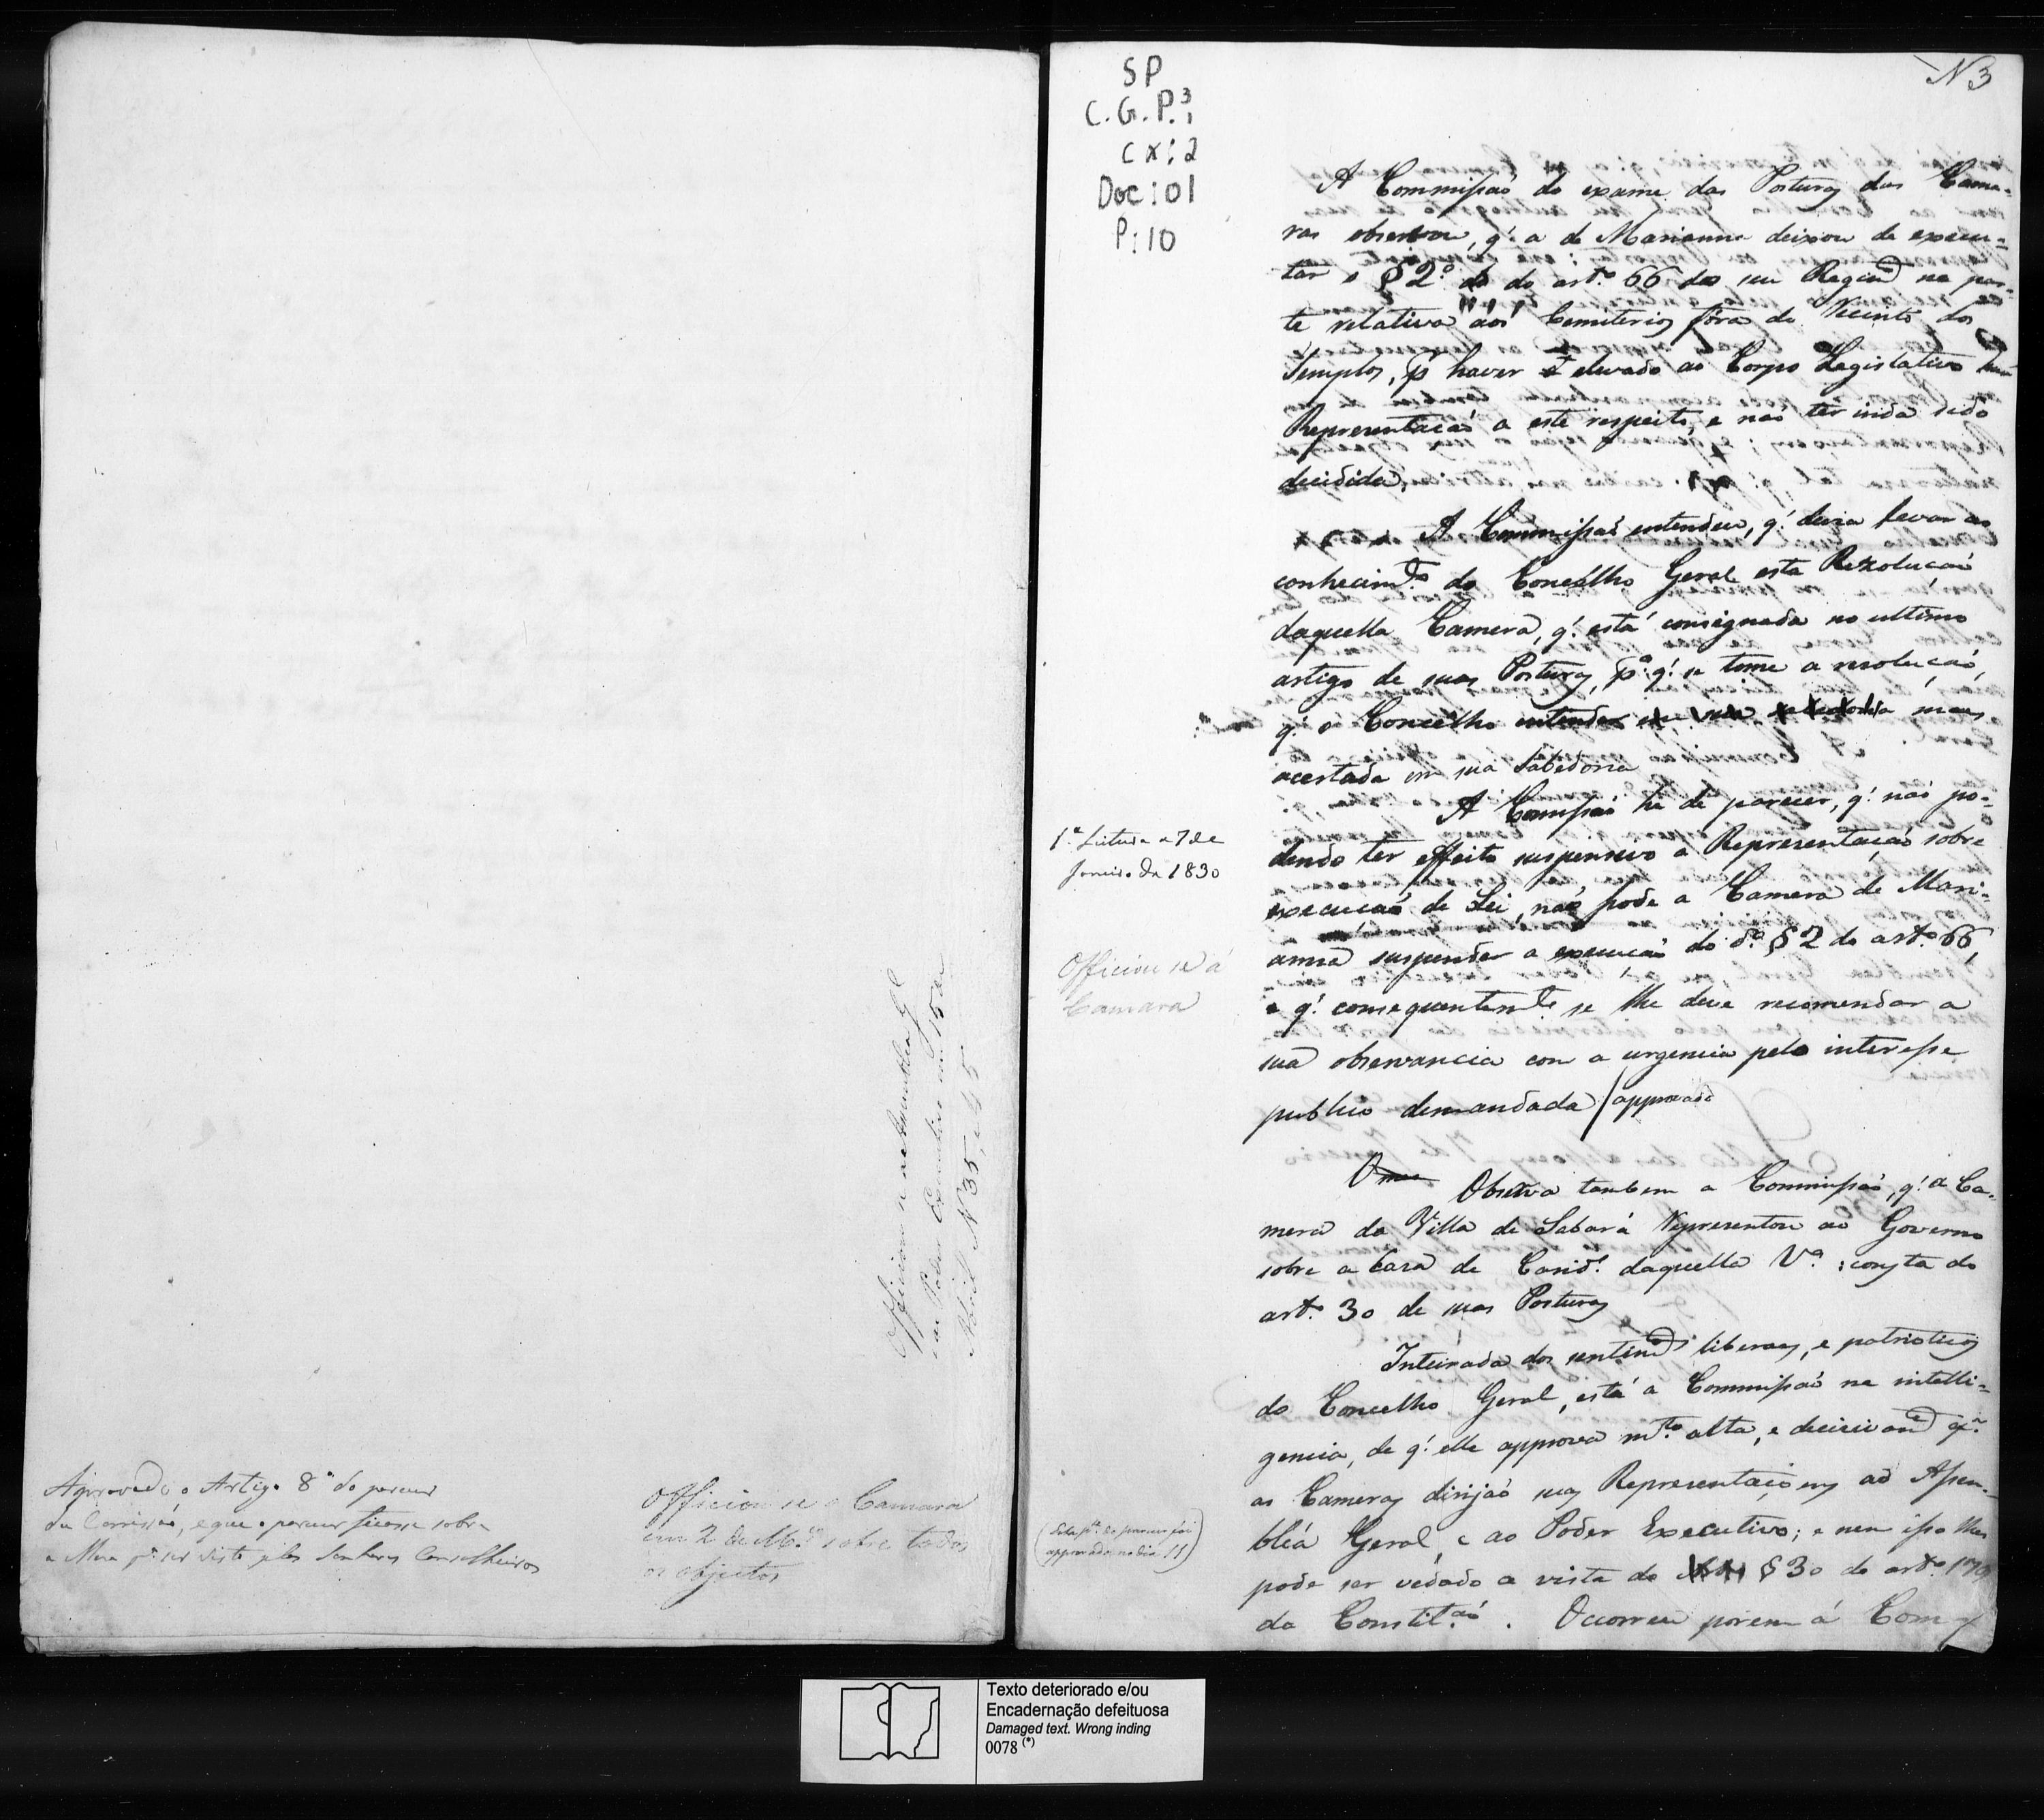 Approvado o Artigo 8º do parecer
da Comissaõ, e que o parecer ficasse sobre
a Mesa pª ser visto pelos Senhores Conselheiros
Officiou se a Camara
em 2 de M.ço sobre todos
os objectos
Officiou se a Assemblea G.l
e ao Poder Executivo em 15 de
Abril Nº 35, e 45
SP
C.G.P.³ 1
cx: 2
Doc: 01
P: 10
N 3
A Commissaõ do exame das Posturas das Came-
ras observou, q.' a de Marianna deixou de execu-
tar o § 2.º do art.º 66 do seu Regim.to na par-
te relativa aos Cemiterios fóra do Recinto dos
Templos, p.r haver elevado ao Corpo Legislativo huma
Representaçaõ a este respeito, e naõ ter inda sido
decidida.
A Commissaõ entendeu, q.' devia levar ao
conhecim.to do Concelho Geral esta Rezoluçaõ
daquella Camera, q.' está consignada no ultimo
artigo de suas Posturas, p.ª q.' se tome a resoluçaõ,
q.' o Concelho entender mais
acertada em sua Sabedoria
A Comissaõ he de parecer, q.' naõ po-
dendo ter effeito suspensivo a Representaçaõ sobre
execuçaõ de Lei, naõ pode a Camera de Mari-
anna suspender a execuçaõ do d.º § 2 do art.º 66,
e q.' consequentem.te se lhe deve recomendar a
sua observancia com a urgencia pelo interesse
publico demandada / approvado
1.ª Leitura a 7 de
Janeiro de 1830
Officiou se á
Camara
Observa tambem a Commissaõ, q.' a Ca-
mera da Villa de Sabará Representou ao Governo
sobre a Casa de Carid.e daquella V.ª : consta do
art.º 30 de suas Posturas
Inteirada dos sentim.tos liberaes, e patrioticos
do Concelho Geral, está a Commissaõ na intelli-
gencia, de q.' elle approva m.to alta, e decisivam.te q.'
as Cameras dirijaõ suas Representaçoens ao Assem-
bléa Geral, e ao Poder Executivo; e nem isso lhes
pode ser vedado a vista do § 30 do art.º 179
da Constit.çaõ. Ocorreu porem á Com
(Esta p.te do parecer foi
approvada no dia 11)
Texto deteriorado e/ou
Encadernação defeituosa
Damaged text. Wrong inding
0078 (*)